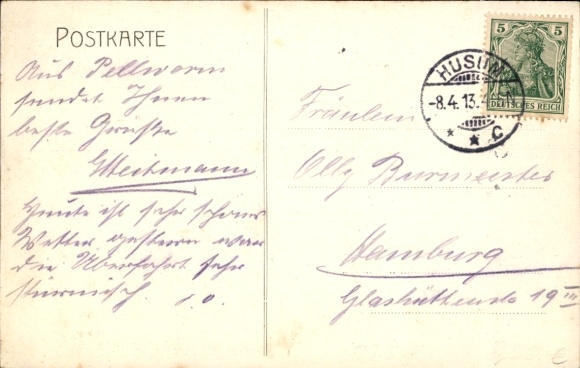 POSTKARTE
Aus Pellworm
sendet Ihnen
beste Grüsse
Weitmann
Heute ist sehr schönes
Wetter gestern war
die Überfahrt sehr
stürmisch
5 5
DEUTSCHES REICH
HUSUM
-8.4.13.
* * C
Fräulein
Olly Burmeister
Hamburg
Glashüttenstr 19 III